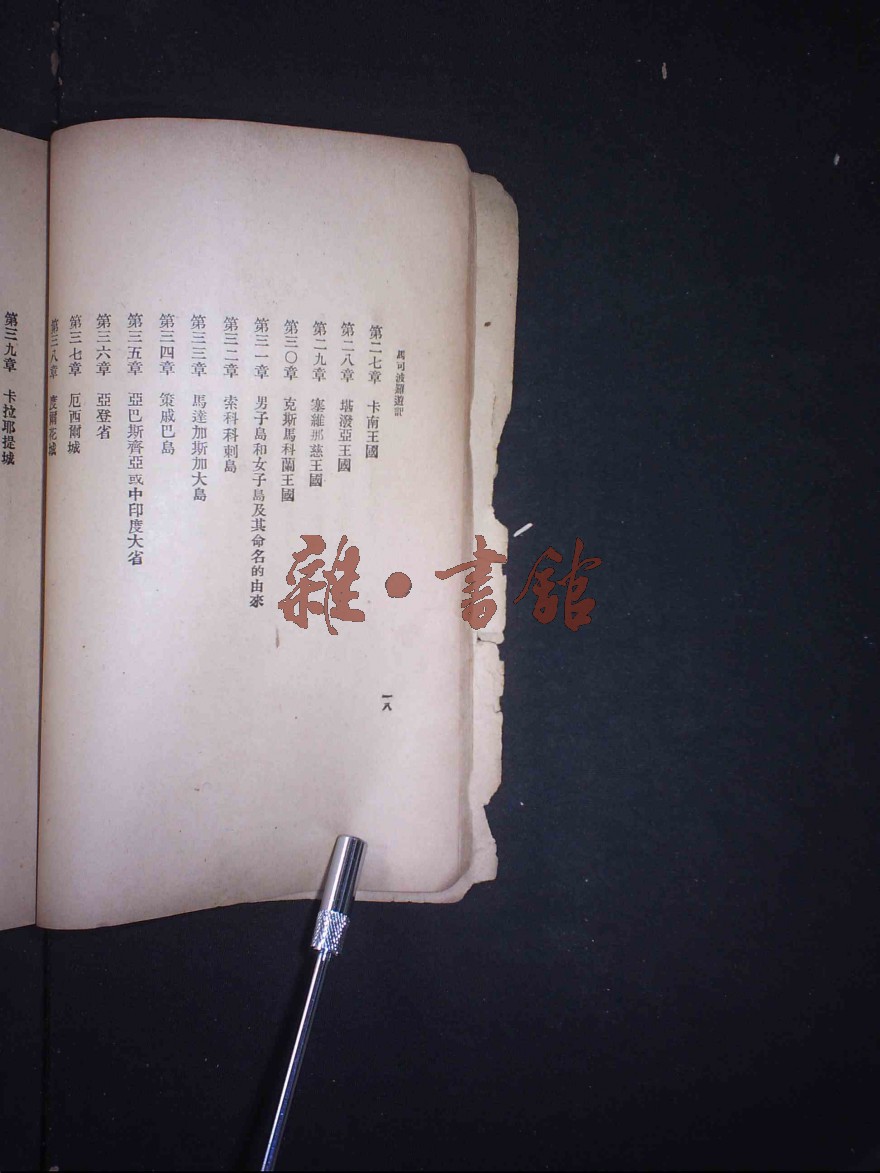 馬可波羅遊記
第二七章 卡南王國
第二八章 堪潑亞王國
第二九章 塞維那慈王國
第三〇章 克斯馬科蘭王國
第三一章 男子島和女子島及其命名的由來
第三二章 索科科刺島
第三三章 馬達加斯加大島
第三四章 策戚巴島
第三五章 亞巴斯齊亞或中印度大省
第三六章 亞登省
第三七章 厄西爾城
第三八章 度爾花城
一八
第三九章 卡拉耶提城
雜·書館